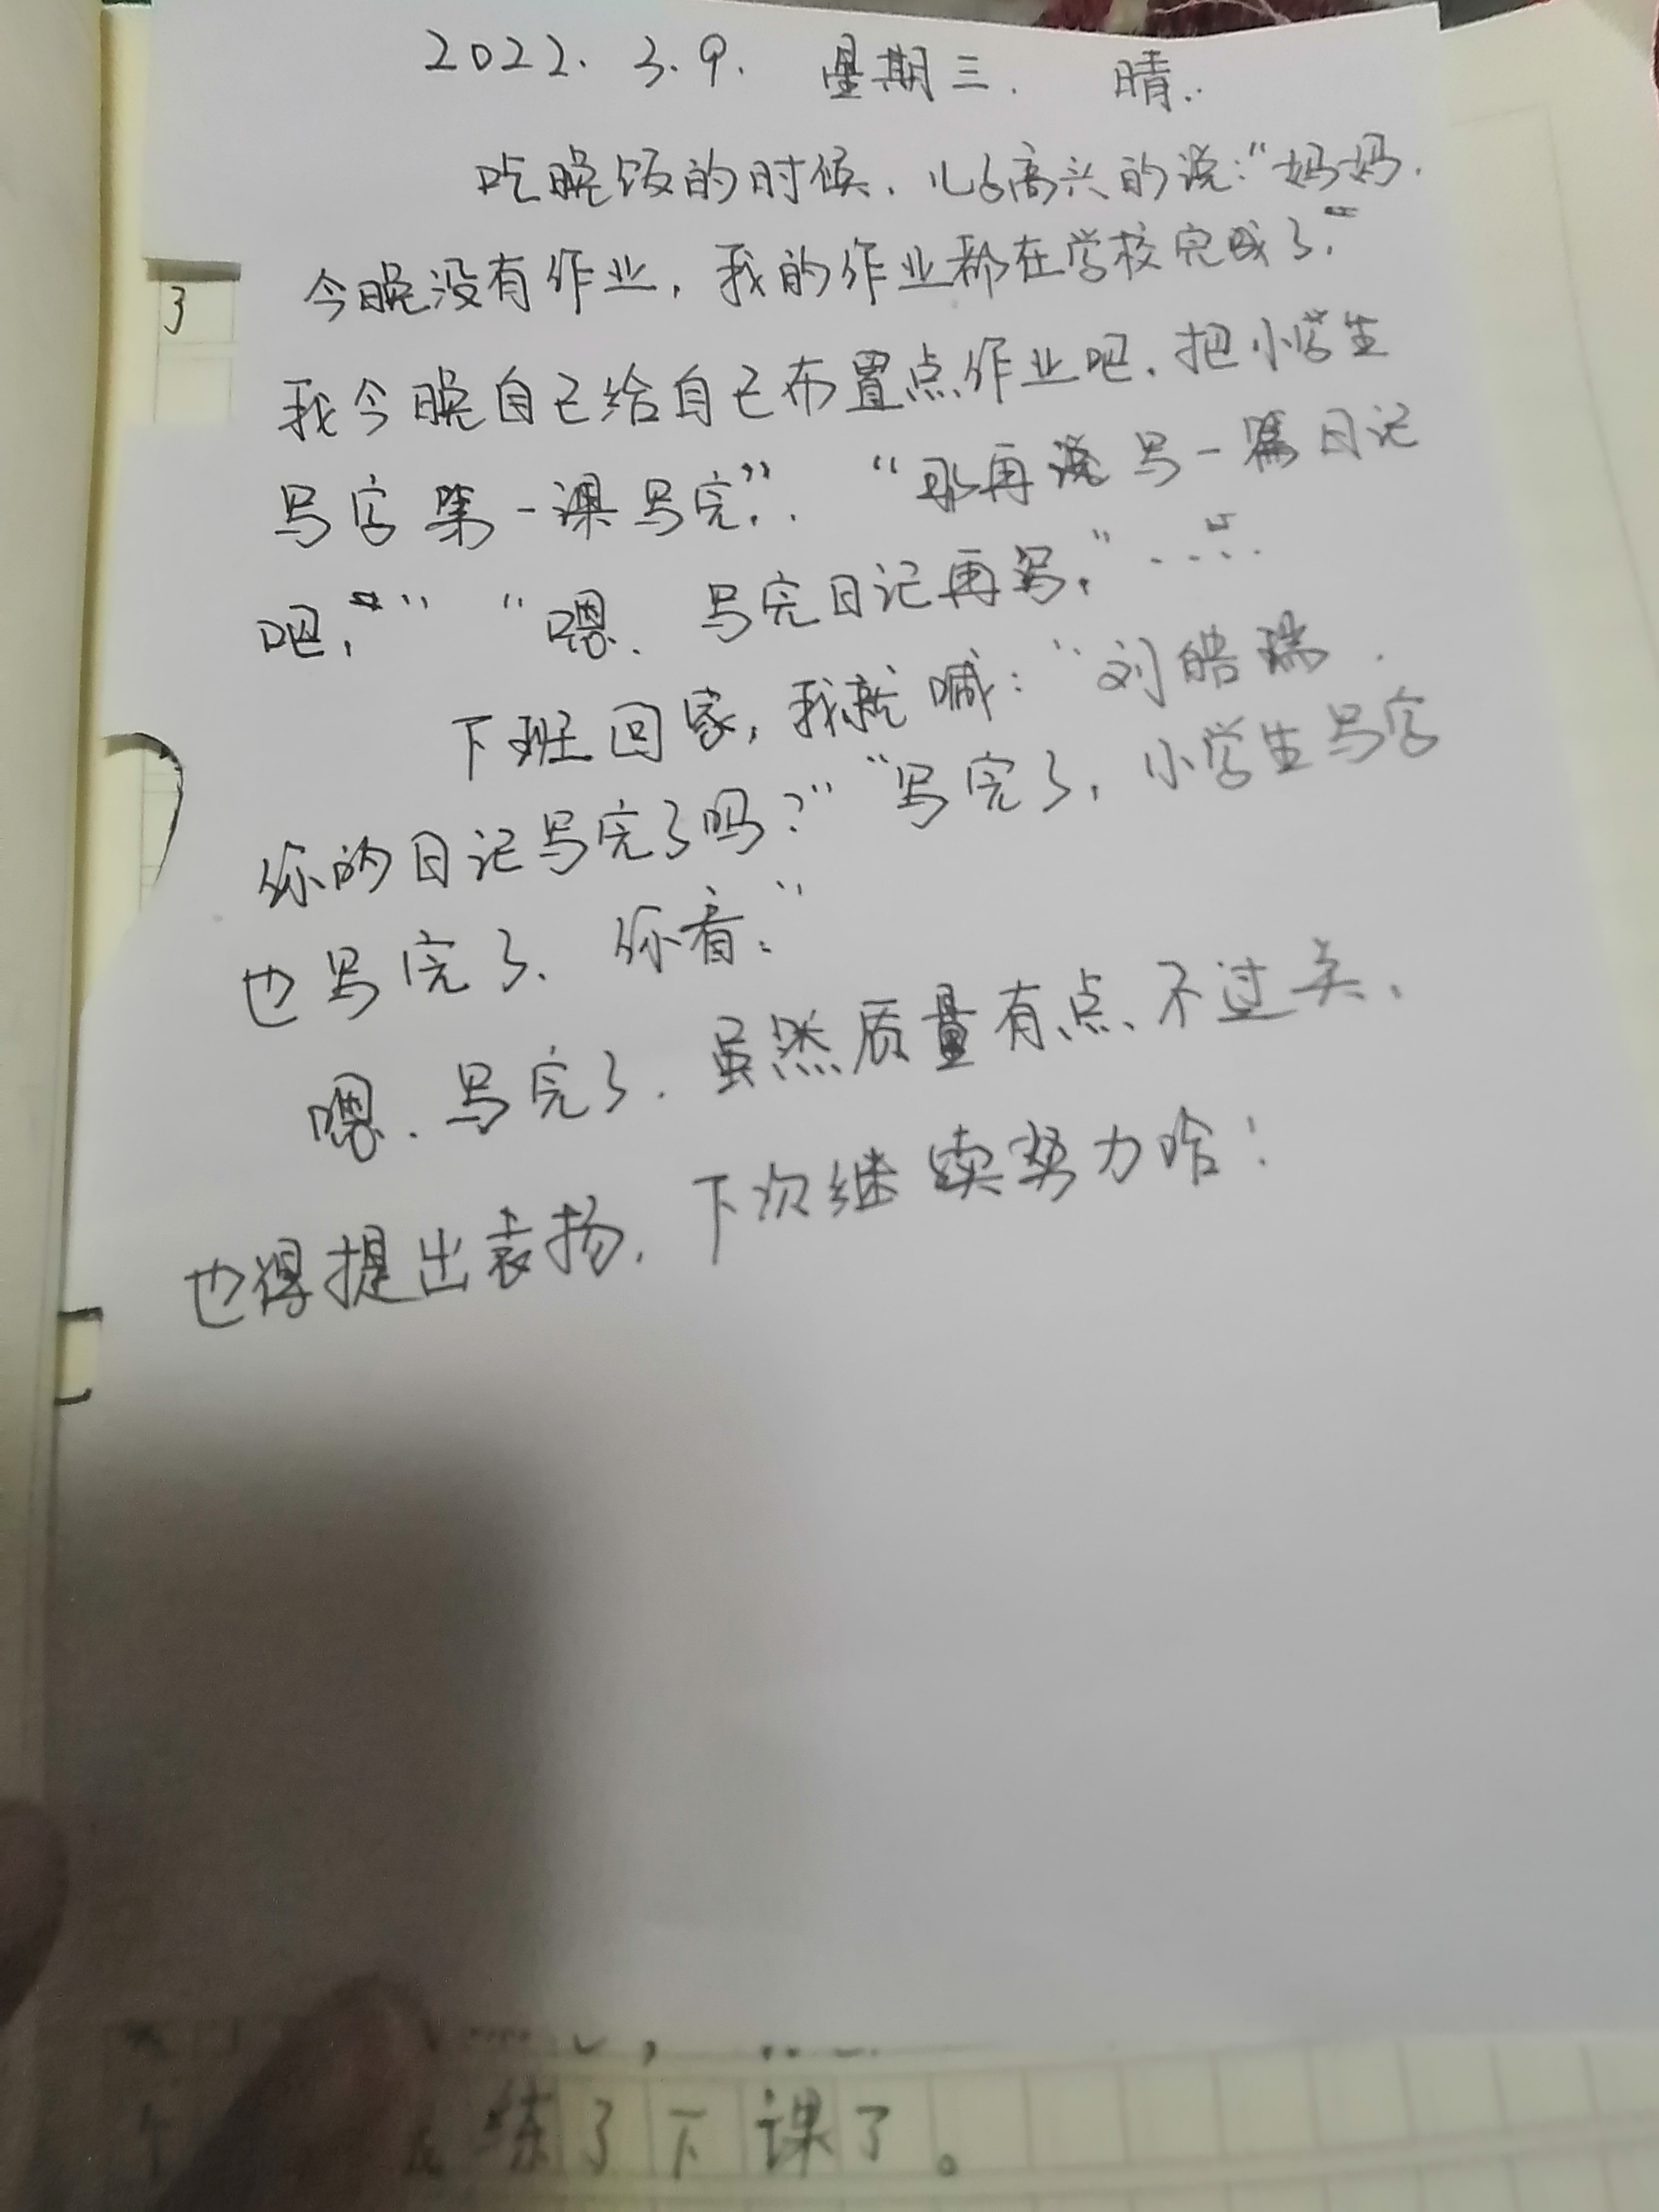 2022. 3.9. 星期三. 晴.
吃晚饭的时候，儿子高兴的说：“妈妈，
今晚没有作业，我的作业都在学校完成了，
3
我今晚自己给自己布置点作业吧，把小学生
写字第一课写完”。“那再写一篇日记
吧，”“嗯，写完日记再写，”……
下班回家，我就喊：“刘皓瑞，
你的日记写完了吗？”“写完了，小学生写字
也写完了，你看：”
嗯，写完了，虽然质量有点不过关，
也得提出表扬，下次继续努力哈！
练了下课了。